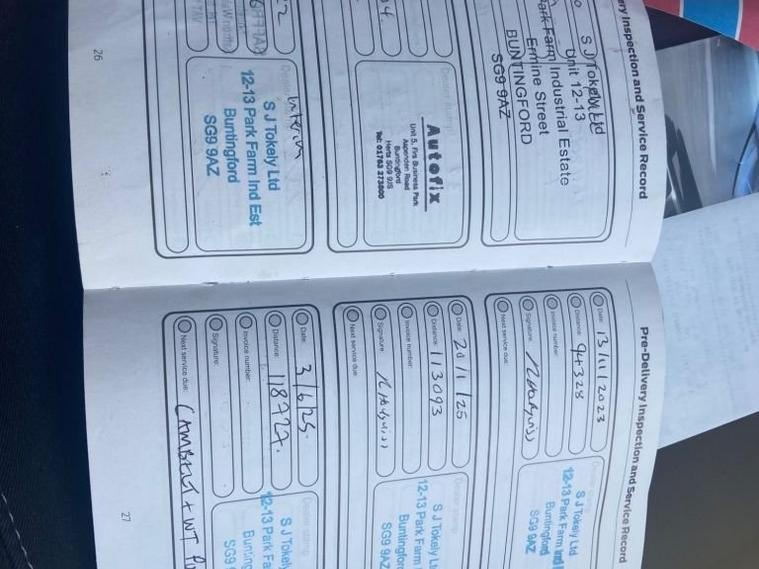 ry Inspection and Service Record
S J Tokely Ltd
Unit 12-13
Park Farm Industrial Estate
Ermine Street
BUNTINGFORD
SG9 9AZ
4.
Autofix
Unit 5, Firs Business Park
Aspenden Road
Buntingford
Herts SG9 9JS
Tel: 01763 273800
Interim
S J Tokely Ltd
12-13 Park Farm Ind Est
Buntingford
SG9 9AZ
26
Pre-Delivery Inspection and Service Record
Date: 13/11/2023
Distance: 94328
Invoice number:
Signature:
Next service due:
S J Tokely Ltd
12-13 Park Farm Ind
Buntingford
SG9 9AZ
Date: 20/1/25
Distance: 113093
Invoice number:
Signature:
Next service due:
S J Tokely Lt
12-13 Park Farm I
Buntingford
SG9 9AZ
Date: 3/6/25.
Distance: 118727.
Invoice number:
Signature:
Next service due: CAMBELT + WT PU
S J Tokely
12-13 Park Fa
Bunting
SG9
27